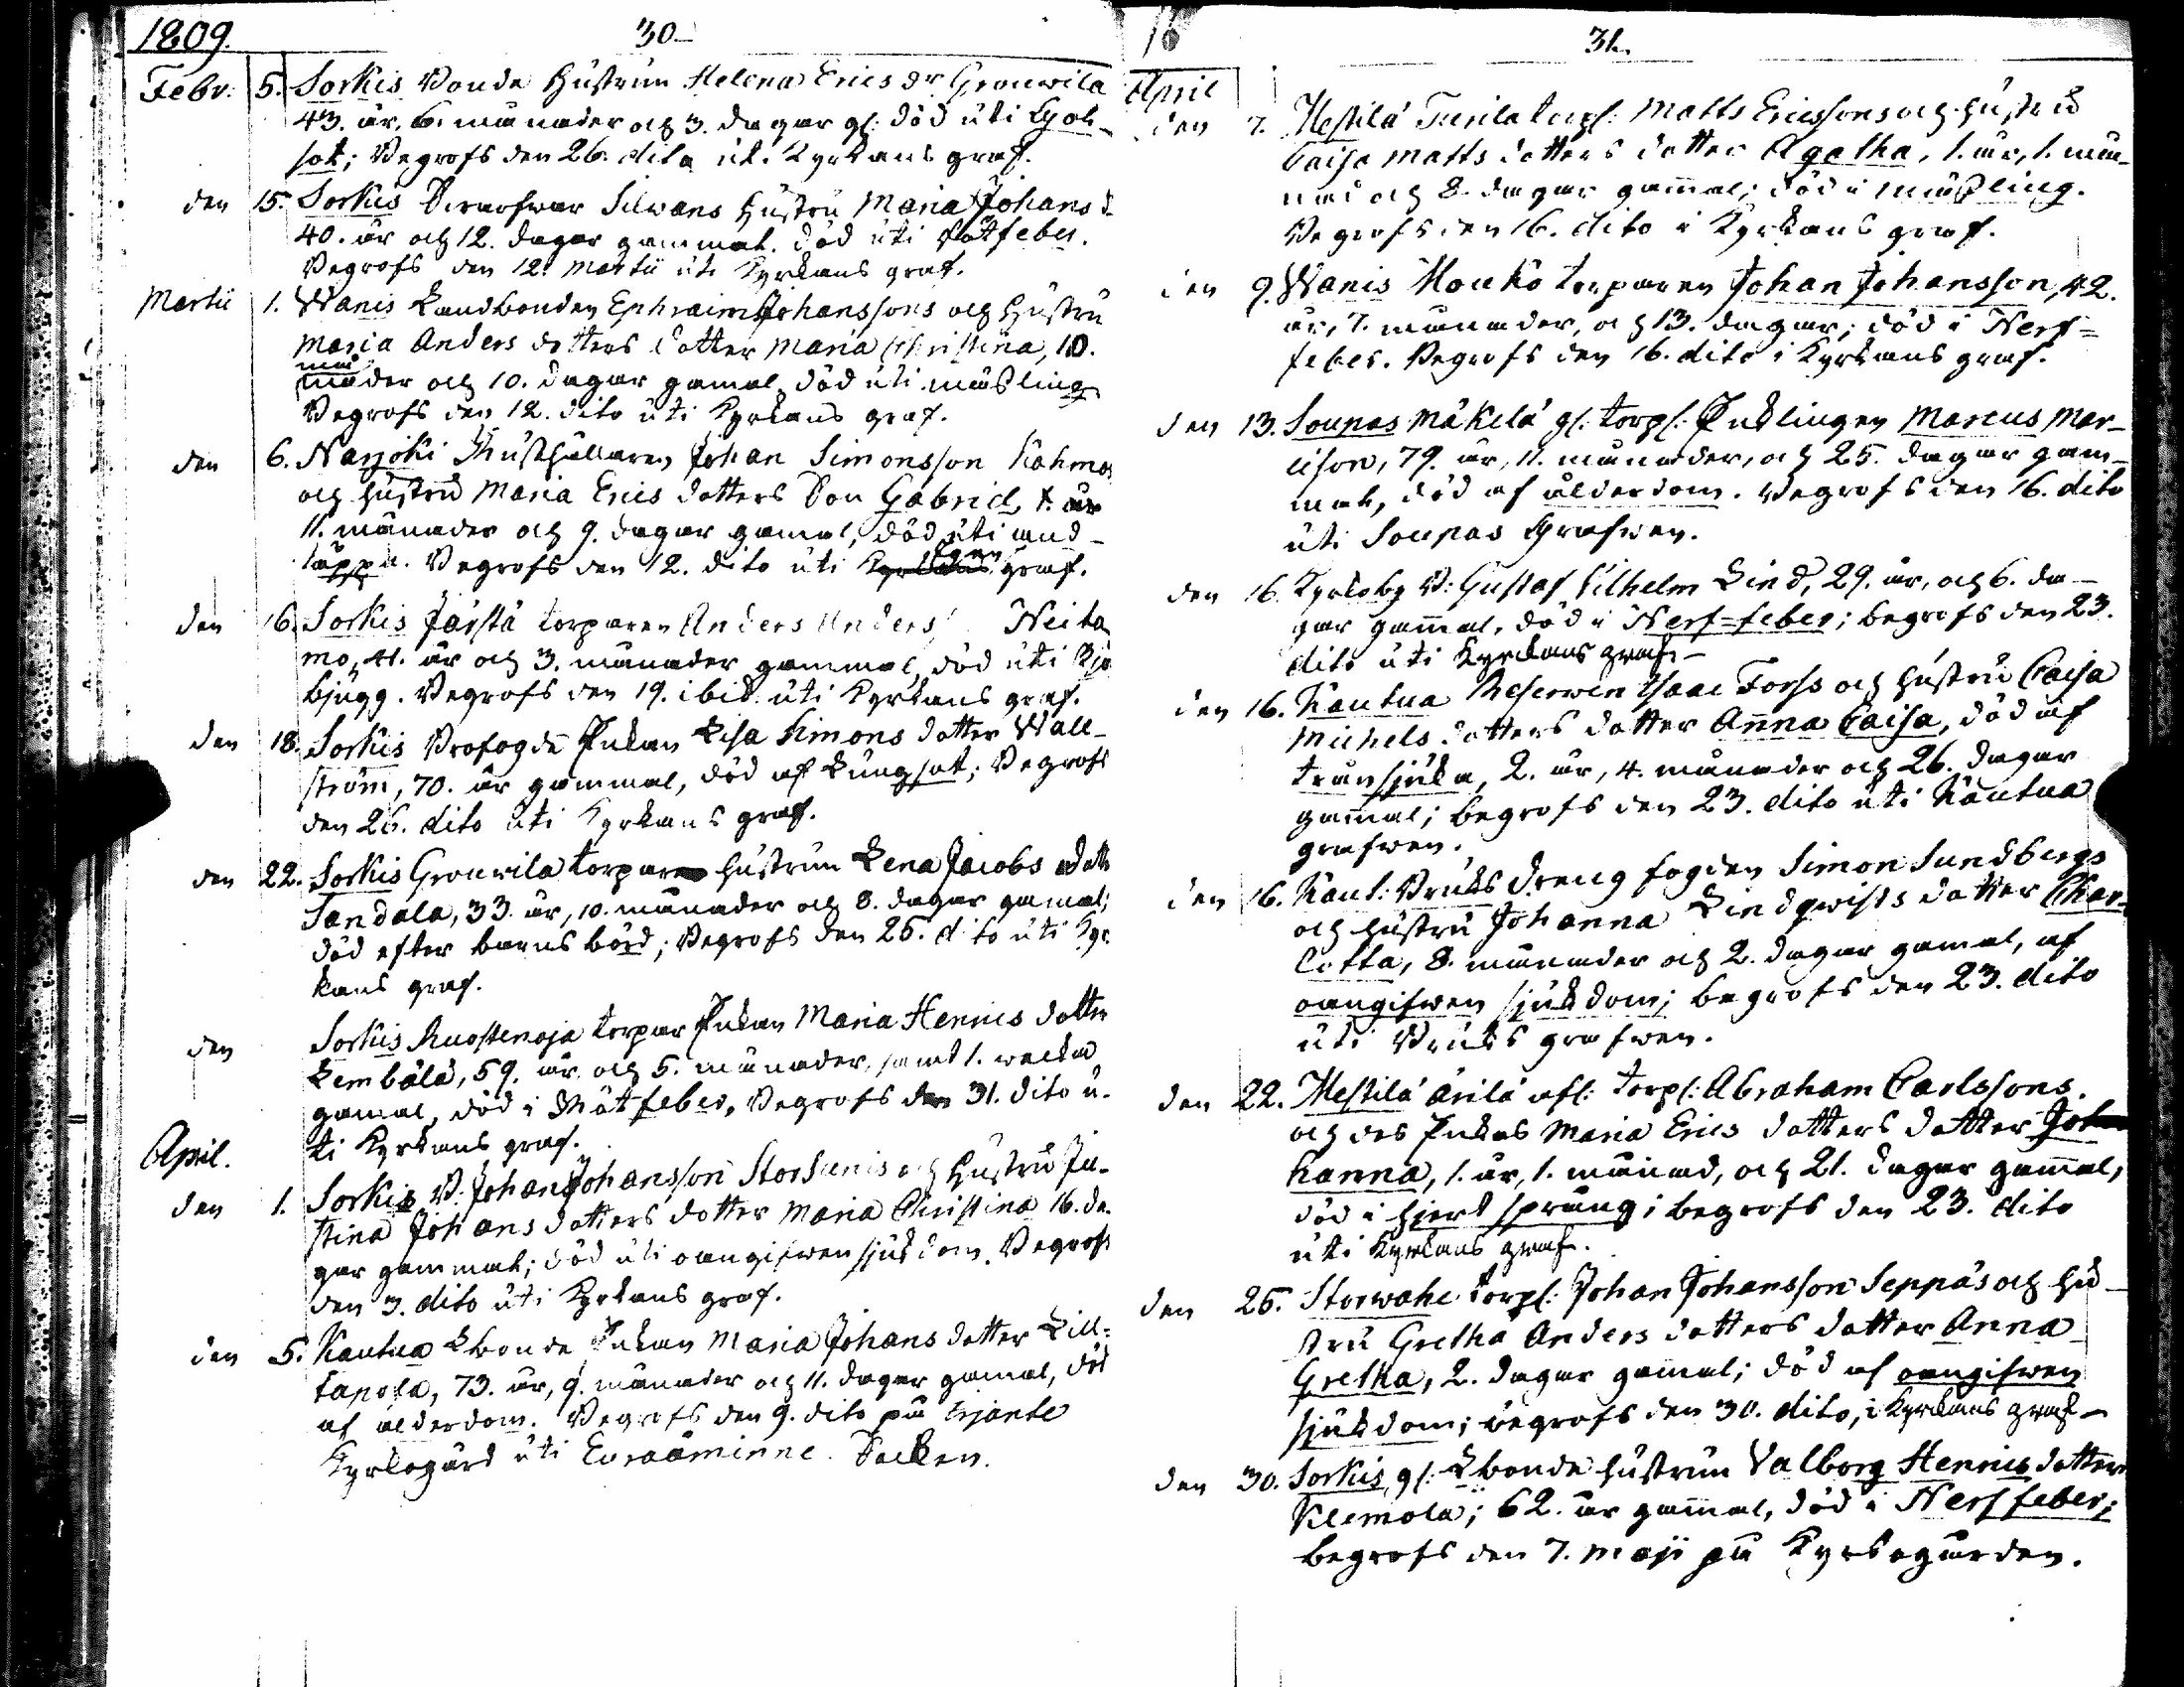 1809.
30.
Febr. 5. Sorkis Bonde Hustrun Helena Erics dr Grouwila
43. år, 6. månader och 3. dagar gl: död uti Lyol-
sot; Begrofs den 26. dito uti Kyrkans graf.
den 15. Sorkis Silwans Hustru Maria Johans d
40. år och 12. dagar gammal. död uti Rötfeber.
Begrofs den 12. Martii uti Kyrkans graf.
Martii 1. Wanis Landbonden Ephraim Johanssons och Hustru
Maria Anders dotters dotter Maria Christina, 10.
må
nader och 10. dagar gamal, död uti mäsling
Begrofs den 12. dito uti Kyrkans graf.
den 6. Narjoki Rusthållaren Johan Simonsson Kahma
och hustru Maria Erics dotters Son Gabriel, 1. år
11. månader och 9. dagar gamal, död uti and-
täppa. Begrofs den 12. dito uti Kyrkans egen graf.
den 16. Sorkis Järstä torparen Anders Anders Neita
mo, 41. år och 3. månader gammal, död uti
bjugg. Begrofs den 19. ibid. uti Kyrkans graf.
den 18. Sorkis Profogde Enkan Lisa Simons dotter Wall-
ström, 70. år gammal, död af Lungsot; Begrofs
den 26. dito uti Kyrkans graf.
den 22. Sorkis Grouwila torpare hustrun Lena Jacobs dott
Sandala, 33. år, 10. månader och 8. dagar gamal;
död efter barns börd; Begrofs den 26. dito uti Kyr
kans graf.
den Sorkis Ruostenoja torpar Enkan Maria Henrics dotter
Lembälä, 59. år och 5. månader, samt 1. wecka
gamal, död i Rötfeber, Begrofs den 31. dito u-
ti Kyrkans graf.
April.
den 1. Sorkis B: Johan Johansson Storsunis och Hustru Ju-
stina Johans dotters dotter Maria Christina 16. da-
gar gammal; död uti oangifwen sjukdom. Begrofs
den 3. dito uti Kyrkans graf.
den 5. Kautua Lbonde Enkan Maria Johans dotter Lill-
tapola, 73. år, 9. månader och 11. dagar gamal, död
af ålderdom. Begrofs den 9. dito på Irjante
Kyrkogård uti Euraåminne Socken.
31.
April
den 7. Hestilä Turila torpf: Matts Ericssons och hustru
Caisa Matts dotters dotter Agatha, 1. år, 1. må-
nad och 8. dagar gamal; död i mäsling.
Begrofs den 16. dito i Kyrkans graf.
den 9. Wanis Houko torparen Johan Johansson, 42.
år, 7. månader, och 13. dagar; död i Nerf=
feber. Begrofs den 16. dito i Kyrkans graf.
den 13. Soupas Mäkelä gl: torpf: Enklingen Marcus Mar-
cison, 79. år, 11. månader, och 25. dagar gam-
mal, död af ålderdom. Begrofs den 16. dito
uti Soupas Grafwen.
den 16. Kyrkoby B: Gustaf Vilhelm Lind, 29. år, och 6. da-
gar gamal, död i Nerf=feber; begrofs den 23.
dito uti Kyrckans graf-
den 16. Kautua Reserwen Isaac Forss och hustru Caisa
Michels dotters dotter Anna Caisa, död af
transjuka, 2. år, 4. månader och 26. dagar
gamal; begrofs den 23. dito uti Kautua
grafwen.
den 16. Kaut: Bruks dreng fogden Simon Sundbergs
och hustru Johanna Lindqwists dotter Char-
lotta, 8. månader och 2. dagar gamal, af
oangifwen sjukdom; begrofs den 23. dito
uti Bruks grafwen.
den 22. Hestilä Ärilä afl: torpf: Abraham Carlssons
och des Enkas Maria Erics dotters dotter Jo
hanna, 1. år, 1. månad, och 21. dagar gamal,
död i hjertsprång; begrofs den 23. dito
uti Kyrkans graf.
den 26. Storwahe torpf: Johan Johansson Seppäs och hu-
stru Gretha Anders dotters dotter Anna
Gretha, 2. dagar gamal; död af oangifwen
sjukdom; begrofs den 30. dito, i Kyrkans graf-
den 30. Sorkis gl: Lbonde hustrun Valborg Henrics dotter
Klemola; 62. år gamal, död i Nerffeber;
begrofs den 7. Maji på Kyrkogården.